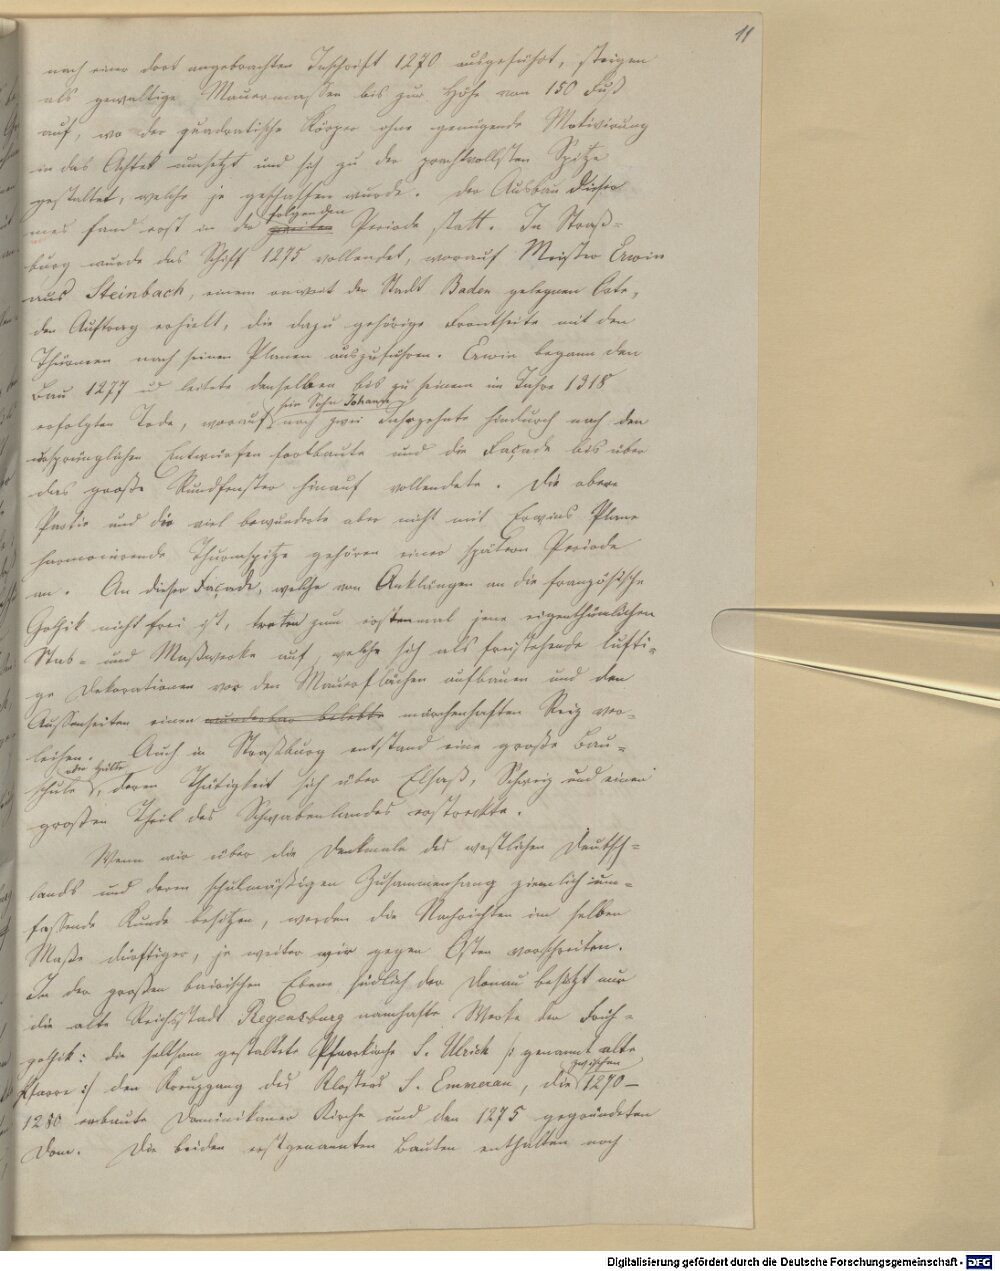 11
nach einer dort angebrachten Inschrift 1270 ausgeführt, steigen
als gewaltige Mauermassen bis zur Höhe von 150 Fuß
auf, wo der quadratische Körper ohne genügende Motivirung
in das Achtek umsetzt und sich zu der prachtvollsten Spitze
gestaltet, welche je geschaffen wurde. Der Ausbau dieser
fand erst in der folgenden Periode statt. In Straß-
burg wurde das Schiff 1275 vollendet, worauf Meister Erwin
aus Steinbach, einem unweit der Stadt Baden gelegnen Orte,
den Auftrag erhielt, die dazu gehörige Frontseite mit den
Thürmen nach seinen Planen auszuführen. Erwin begann den
Bau 1277 und leitete denselben bis zu seinem im Jahre 1318
erfolgten Tode, worauf sein Sohn Johannes noch zwei Jahrzehnte hindurch nach den
ursprünglichen Entwürfen fortbaute und die Façade bis über
das große Rundfenster hinauf vollendete. Die obere
Partie und die viel bewunderte aber nicht mit Erwins Plane
harmonirende Thurmspitze gehören einer spätern Periode
an. An dieser Façade, welche von Anklängen an die französische
Gothik nicht frei ist, treten zum erstenmal jene eigenthümlichen
Stab- und Maßwerke auf, welche sich als freistehende lufti-
ge Dekorationen vor den Mauerflächen aufbauen und den
Aussenseiten einen wunderbar belebte märchenhaften Reiz ver-
leihen. Auch in Straßburg entstand eine große Bau-
schule oder Hütte, deren Thätigkeit sich über Elsaß, Schweiz und einen
großen Theil des Schwabenlandes erstreckte.
Wenn wir über die Denkmale des westlichen Deutsch-
lands und deren schulmäßigen Zusammenhang ziemlich um-
fassende Kunde besitzen, werden die Nachrichten im selben
Maße dürftiger, je weiter wir gegen Osten vorschreiten.
In der großen bairischen Ebene südlich der Donau besitzt nur
die alte Reichsstadt Regensburg namhafte Werke der Früh-
gothik: die seltsam gestaltete Pfarrkirche S. Ulrich /: genannt alte
Pfarre :/ den Kreuzgang des Klosters S. Emmeran, die zwischen 1270-
1280 erbaute Dominikaner Kirche und den 1275 gegründeten
Dom. Die beiden erstgenannten Bauten enthalten noch
Digitalisierung gefördert durch die Deutsche Forschungsgemeinschaft - DFG